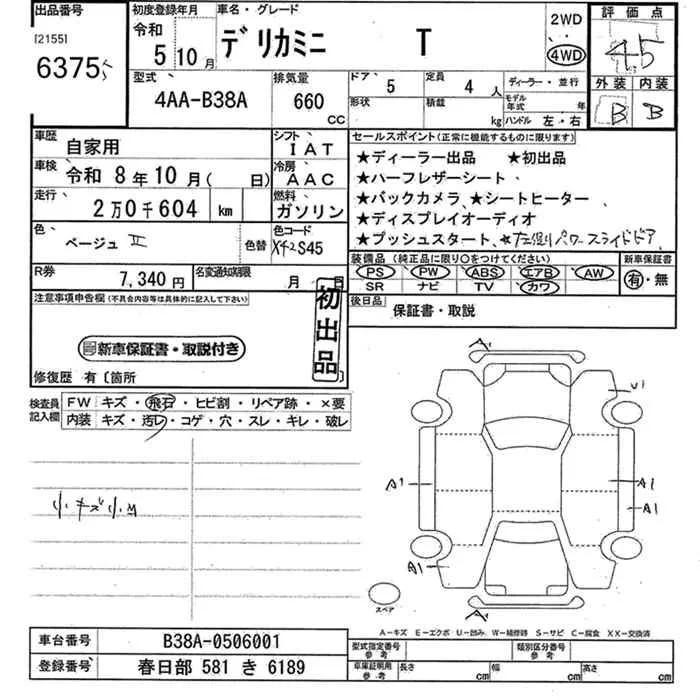 出品番号 初度登録年月 車名・グレード 2WD 評価点
[2155] 令和
6375 5 10月 デリカミニ T 4WD 4.5
型式 排気量 ドア 5 定員 4人 ディーラー・並行 外装 内装
4AA-B38A 660 cc 形状 積載 kg モデル年式 年 ハンドル 左・右 B B
車歴 自家用 シフト IAT セールスポイント(正常に機能するものに限ります)
車検 令和 8年 10月( 日) 冷房 AAC ★ディーラー出品 ★初出品
走行 2万0千604 km 燃料 ガソリン ★ハーフレザーシート
★バックカメラ ★シートヒーター
★ディスプレイオーディオ
色 ベージュⅡ 色替 色コード X42S45 ★プッシュスタート ★左側パワースライドドア
装備品(純正品に限り○をつけてください) 新車保証書
R券 7,340円 名変通知期限 月 日 PS PW ABS エアB AW 有・無
SR ナビ TV カワ
注意事項申告欄(不具合内容等は具体的に記入して下さい) 初出品 後日品 保証書・取説
新車保証書・取説付き
修復歴 有〔箇所
検査員記入欄 FW キズ・飛石・ヒビ割・リペア跡・×要
内装 キズ・汚レ・コゲ・穴・スレ・キレ・破レ
小キズ小凹
A
U1
A1 A1
A1
A1
A
スペア
A−キズ E−エクボ U−凹み W−補修跡 S−サビ C−腐食 XX−交換済
車台番号 B38A-0506001 型式指定番号 参考 類別区分番号 参考
登録番号 春日部 581 き 6189 車庫証明用 参考 長さ cm 幅 cm 高さ cm